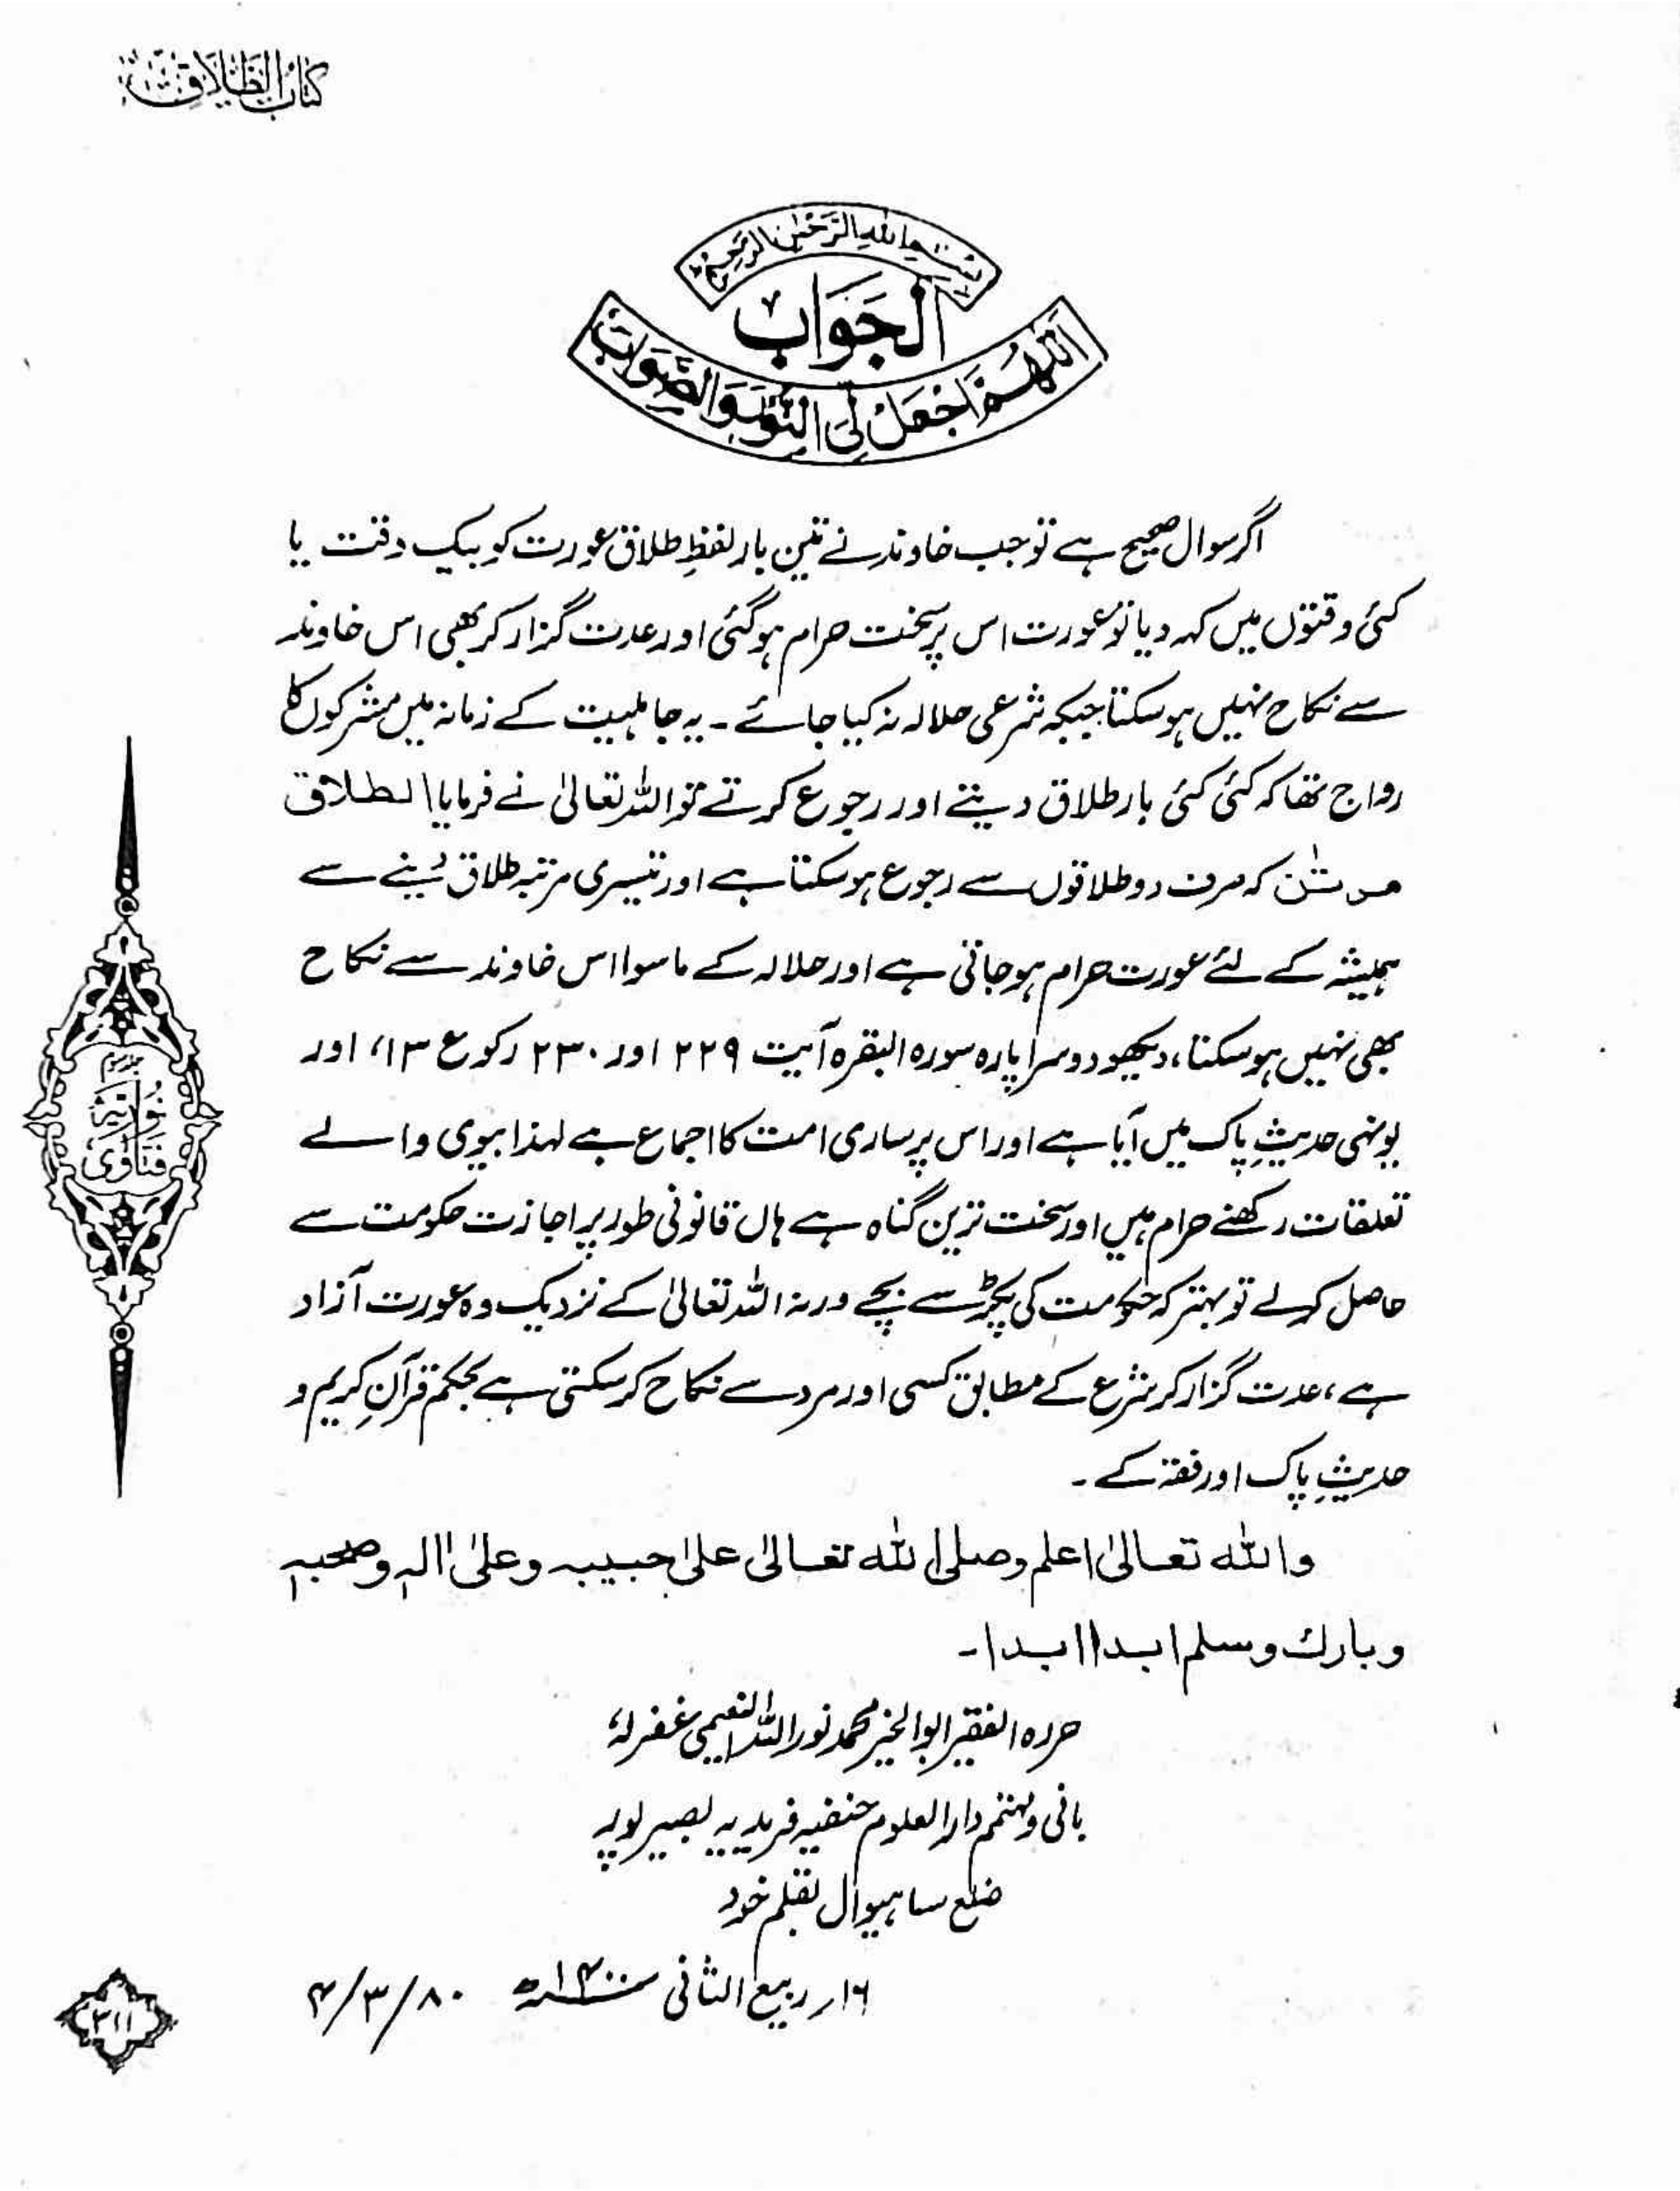 کتاب الطلاق
بِسْمِ اللهِ الرَّحْمٰنِ الرَّحِيْمِ
اَلجَوَابُ
اَللّٰهُمَّ اجْعَلْ لِیَ النُّوْرَ وَالصَّوَابَ
اگر سوال صحیح ہے تو جب خاوند نے تین بار لفظِ طلاق عورت کو بیک وقت یا
کئی وقتوں میں کہہ دیا تو عورت اس پر سخت حرام ہو گئی اور عدت گزار کر بھی اس خاوند
سے نکاح نہیں ہو سکتا جبکہ شرعی حلالہ نہ کیا جائے ۔ یہ جاہلیت کے زمانہ میں مشرکوں کا
رواج تھا کہ کئی کئی بار طلاق دیتے اور رجوع کرتے تو اللہ تعالیٰ نے فرمایا الطلاق
مرتٰن کہ صرف دو طلاقوں سے رجوع ہو سکتا ہے اور تیسری مرتبہ طلاق دینے سے
ہمیشہ کے لئے عورت حرام ہو جاتی ہے اور حلالہ کے ماسوا اس خاوند سے نکاح
بھی نہیں ہو سکتا ، دیکھو دوسرا پارہ سورہ البقرہ آیت ۲۲۹ اور ۲۳۰ رکوع ۱۳، اور
یونہی حدیثِ پاک میں آیا ہے اور اس پر ساری امت کا اجماع ہے لہذا بیوی والے
تعلقات رکھنے حرام ہیں اور سخت ترین گناہ ہے ہاں قانونی طور پر اجازت حکومت سے
حاصل کر لے تو بہتر کہ حکومت کی پکڑ سے بچے ورنہ اللہ تعالیٰ کے نزدیک وہ عورت آزاد
ہے ، عدت گزار کر شرع کے مطابق کسی اور مرد سے نکاح کر سکتی ہے بحکم قرآنِ کریم و
حدیثِ پاک اور فقہ کے ۔
واللہ تعالیٰ اعلم وصلی اللہ تعالیٰ علیٰ حبیبہ وعلیٰ اٰلہٖ وصحبہٖ
وبارك وسلم ابدا ابدا۔
حررہ الفقیر ابوالخیر محمد نور اللہ النعیمی غفرلہٗ
بانی و مہتمم دارالعلوم حنفیہ فریدیہ بصیرپور
ضلع ساہیوال بقلم خود
۱۶؍ ربیع الثانی ۱۴۰۰ھ ۴/۳/۸۰
فَتَاوٰی نُوْرِیَّہ
۳۱۱